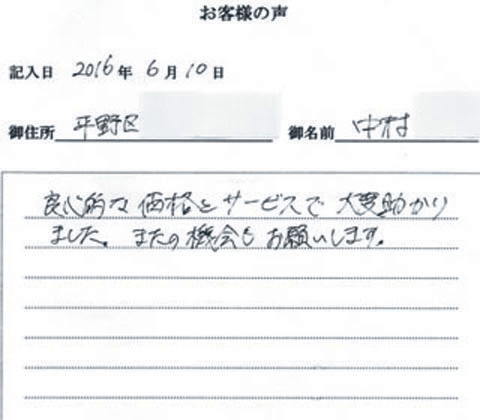 お客様の声
記入日 2016年 6月10日
御住所 平野区 御名前 中村
良心的な価格とサービスで大変助かり
ました。またの機会もお願いします。